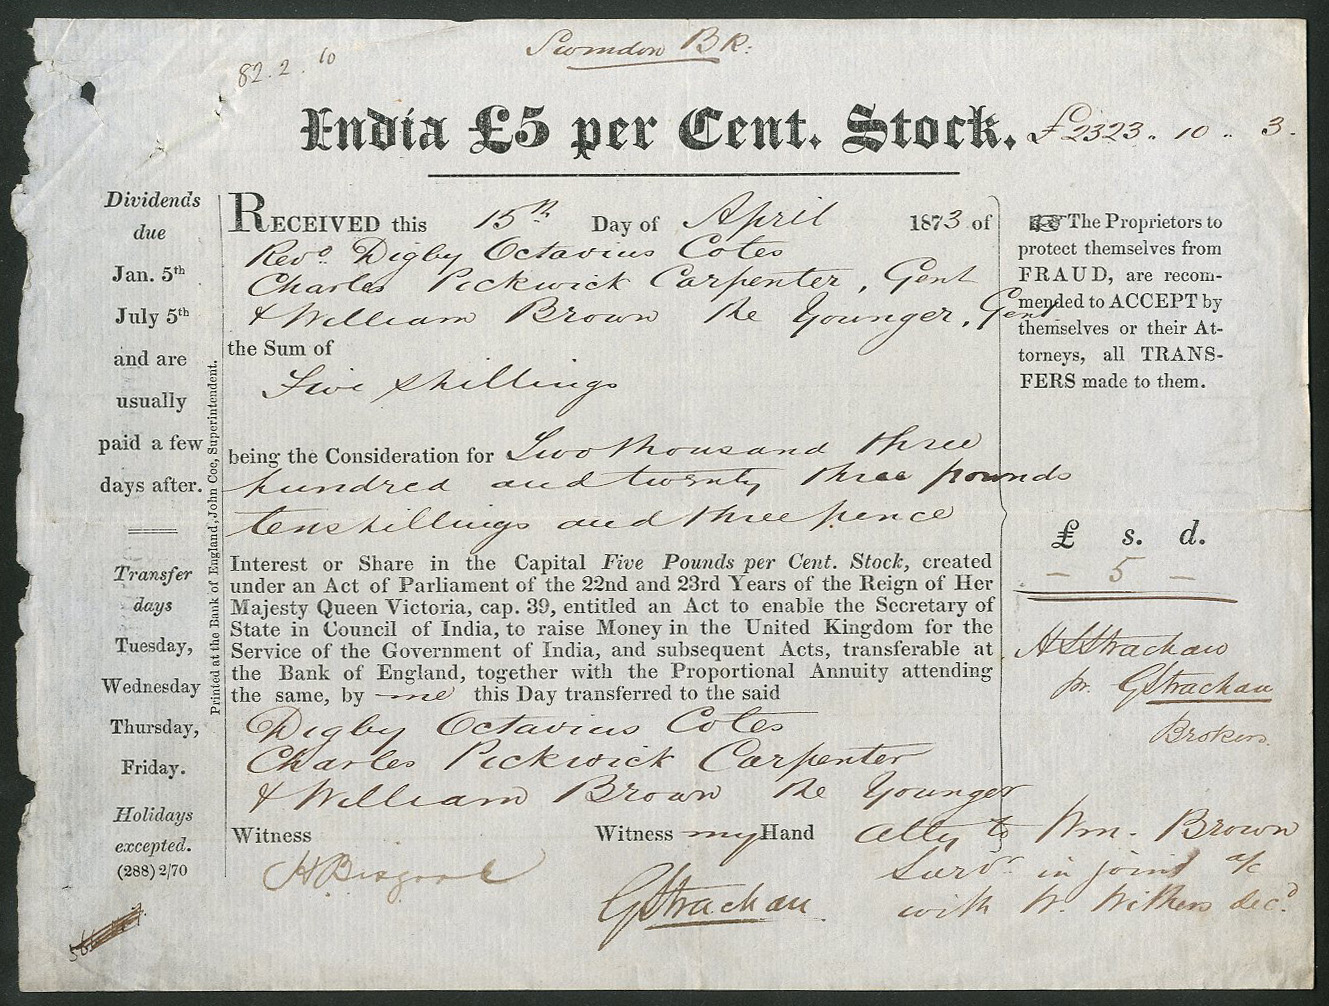 82.2.10
Swindon BK:
India £5 per Cent. Stock. £2323.. 10 .. 3.
Dividends
due
Jan. 5th
July 5th
and are
usually
paid a few
days after.
Transfer
days
Tuesday,
Wednesday
Thursday,
Friday.
Holidays
excepted.
(288) 2/70
Printed at the Bank of England, John Coe, Superintendent.
RECEIVED this 15th Day of April 1873 of
Revd Digby Octavius Cotes
Charles Pickwick Carpenter, Gent
& William Brown the Younger, Gent
the Sum of
Five shillings
being the Consideration for Two thousand three
hundred and twenty three pounds
ten shillings and three pence
Interest or Share in the Capital Five Pounds per Cent. Stock, created
under an Act of Parliament of the 22nd and 23rd Years of the Reign of Her
Majesty Queen Victoria, cap. 39, entitled an Act to enable the Secretary of
State in Council of India, to raise Money in the United Kingdom for the
Service of the Government of India, and subsequent Acts, transferable at
the Bank of England, together with the Proportional Annuity attending
the same, by me this Day transferred to the said
Digby Octavius Cotes
Charles Pickwick Carpenter
& William Brown the Younger
Witness Witness my Hand Atty to Wm. Brown
Survr in joint a/c
with W. Withers decd
H Bisgood
G Strachan
The Proprietors to
protect themselves from
FRAUD, are recom-
mended to ACCEPT by
themselves or their At-
torneys, all TRANS-
FERS made to them.
£ s. d.
– 5 –
H Strachan
pr. G Strachan
Brokers.